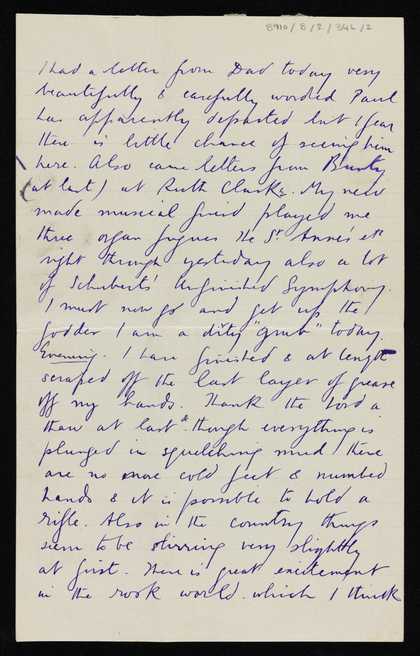 8910/8/2/342/2
I had a letter from Dad today very
beautifully & carefully worded Paul
has apparently departed but I fear
there is little chance of seeing him
here. Also came letters from Bunty
(at last) at Ruth Clarks. My new
made musical freid played me
three organ fugues the St Anne's etc
right through yesterday also a lot
of Schubert's Unfinished Symphony.
I must now go and get up the
fodder I am a dity "grub" today.
Evening. I have finished & at length
scraped off the last layer of grease
off my hands. Thank the Lord a
thaw at last & though everything is
plunged in squelching mud there
are no more cold feet & numbed
hands & it is possible to hold a
rifle. Also in the country things
seem to be stirring very slightly
at first. There is great excitement
in the rook world. which I think